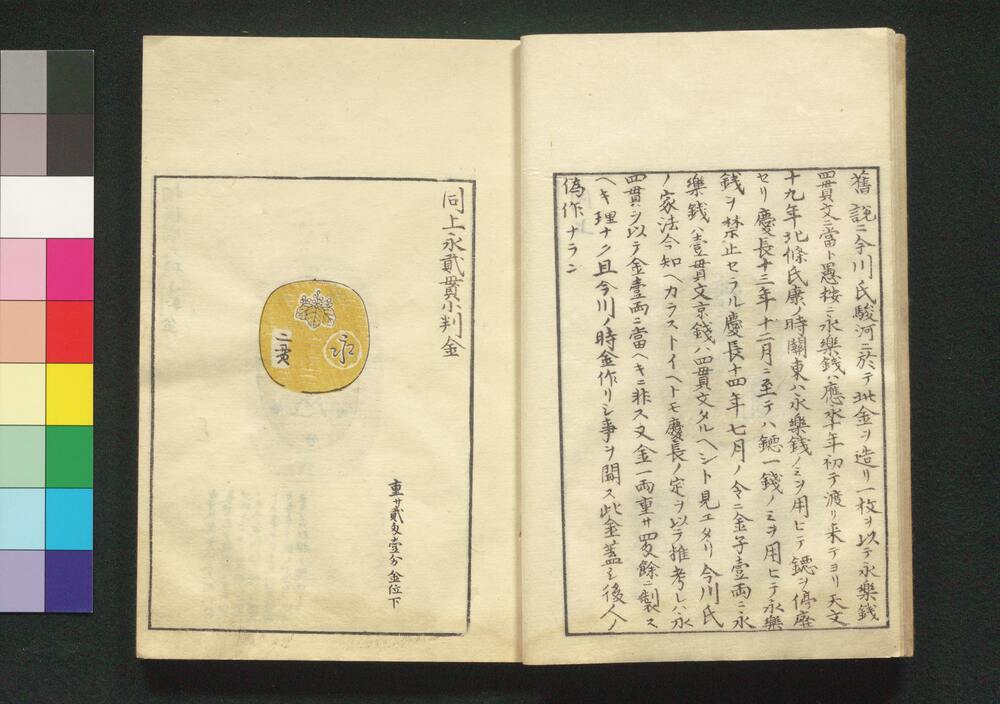 舊説ニ今川氏駿河ニ於テ此金ヲ造リ一枚ヲ以テ永樂銭
四貫文ニ當ト愚按ニ永樂銭ハ應永年初テ渡リ来テヨリ天文
十九年北條氏康ノ時關東ハ永樂銭ノミヲ用ヒテ鐚ヲ停廃
セリ慶長十三年十二月ニ至テハ鐚一銭ノミヲ用ヒテ永樂
銭ヲ禁止セラル慶長十四年七月ノ令ニ金子壹両ニ永
樂銭ハ壹貫文京銭ハ四貫文タルヘシト見エタリ今川氏
ノ家法今知ヘカラストイヘトモ慶長ノ定ヲ以テ推考レハ永
四貫ヲ以テ金壹両ニ當ヘキニ非ス又金一両重サ四匁餘ニ製ス
ヘキ理ナク且今川ノ時金作リシ事ヲ聞ス此金蓋シ後人ノ
偽作ナラン
同上永貳貫小判金
永
二貫
重サ貳匁壹分 金位下